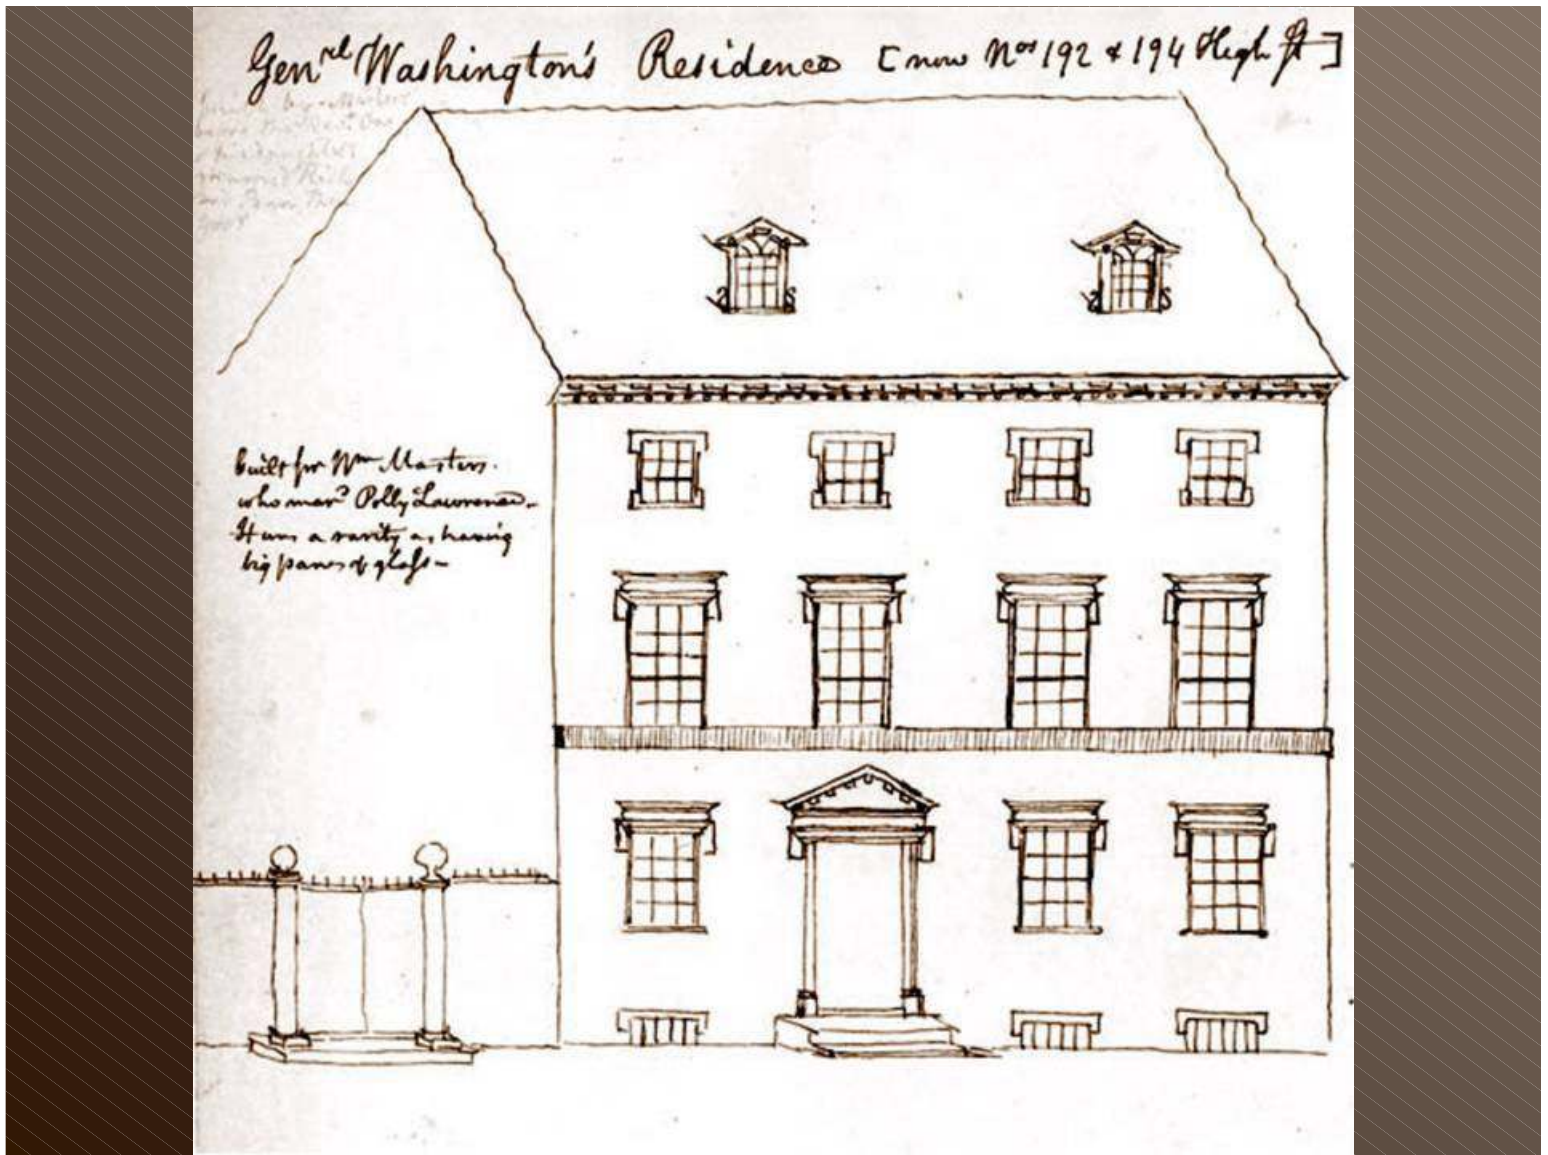 Genrel Washington's Residence [now Nos 192 & 194 High St]
built for Wm Masters.
who mard Polly Lawrence.
It was a rarity as having
big panes of glass-